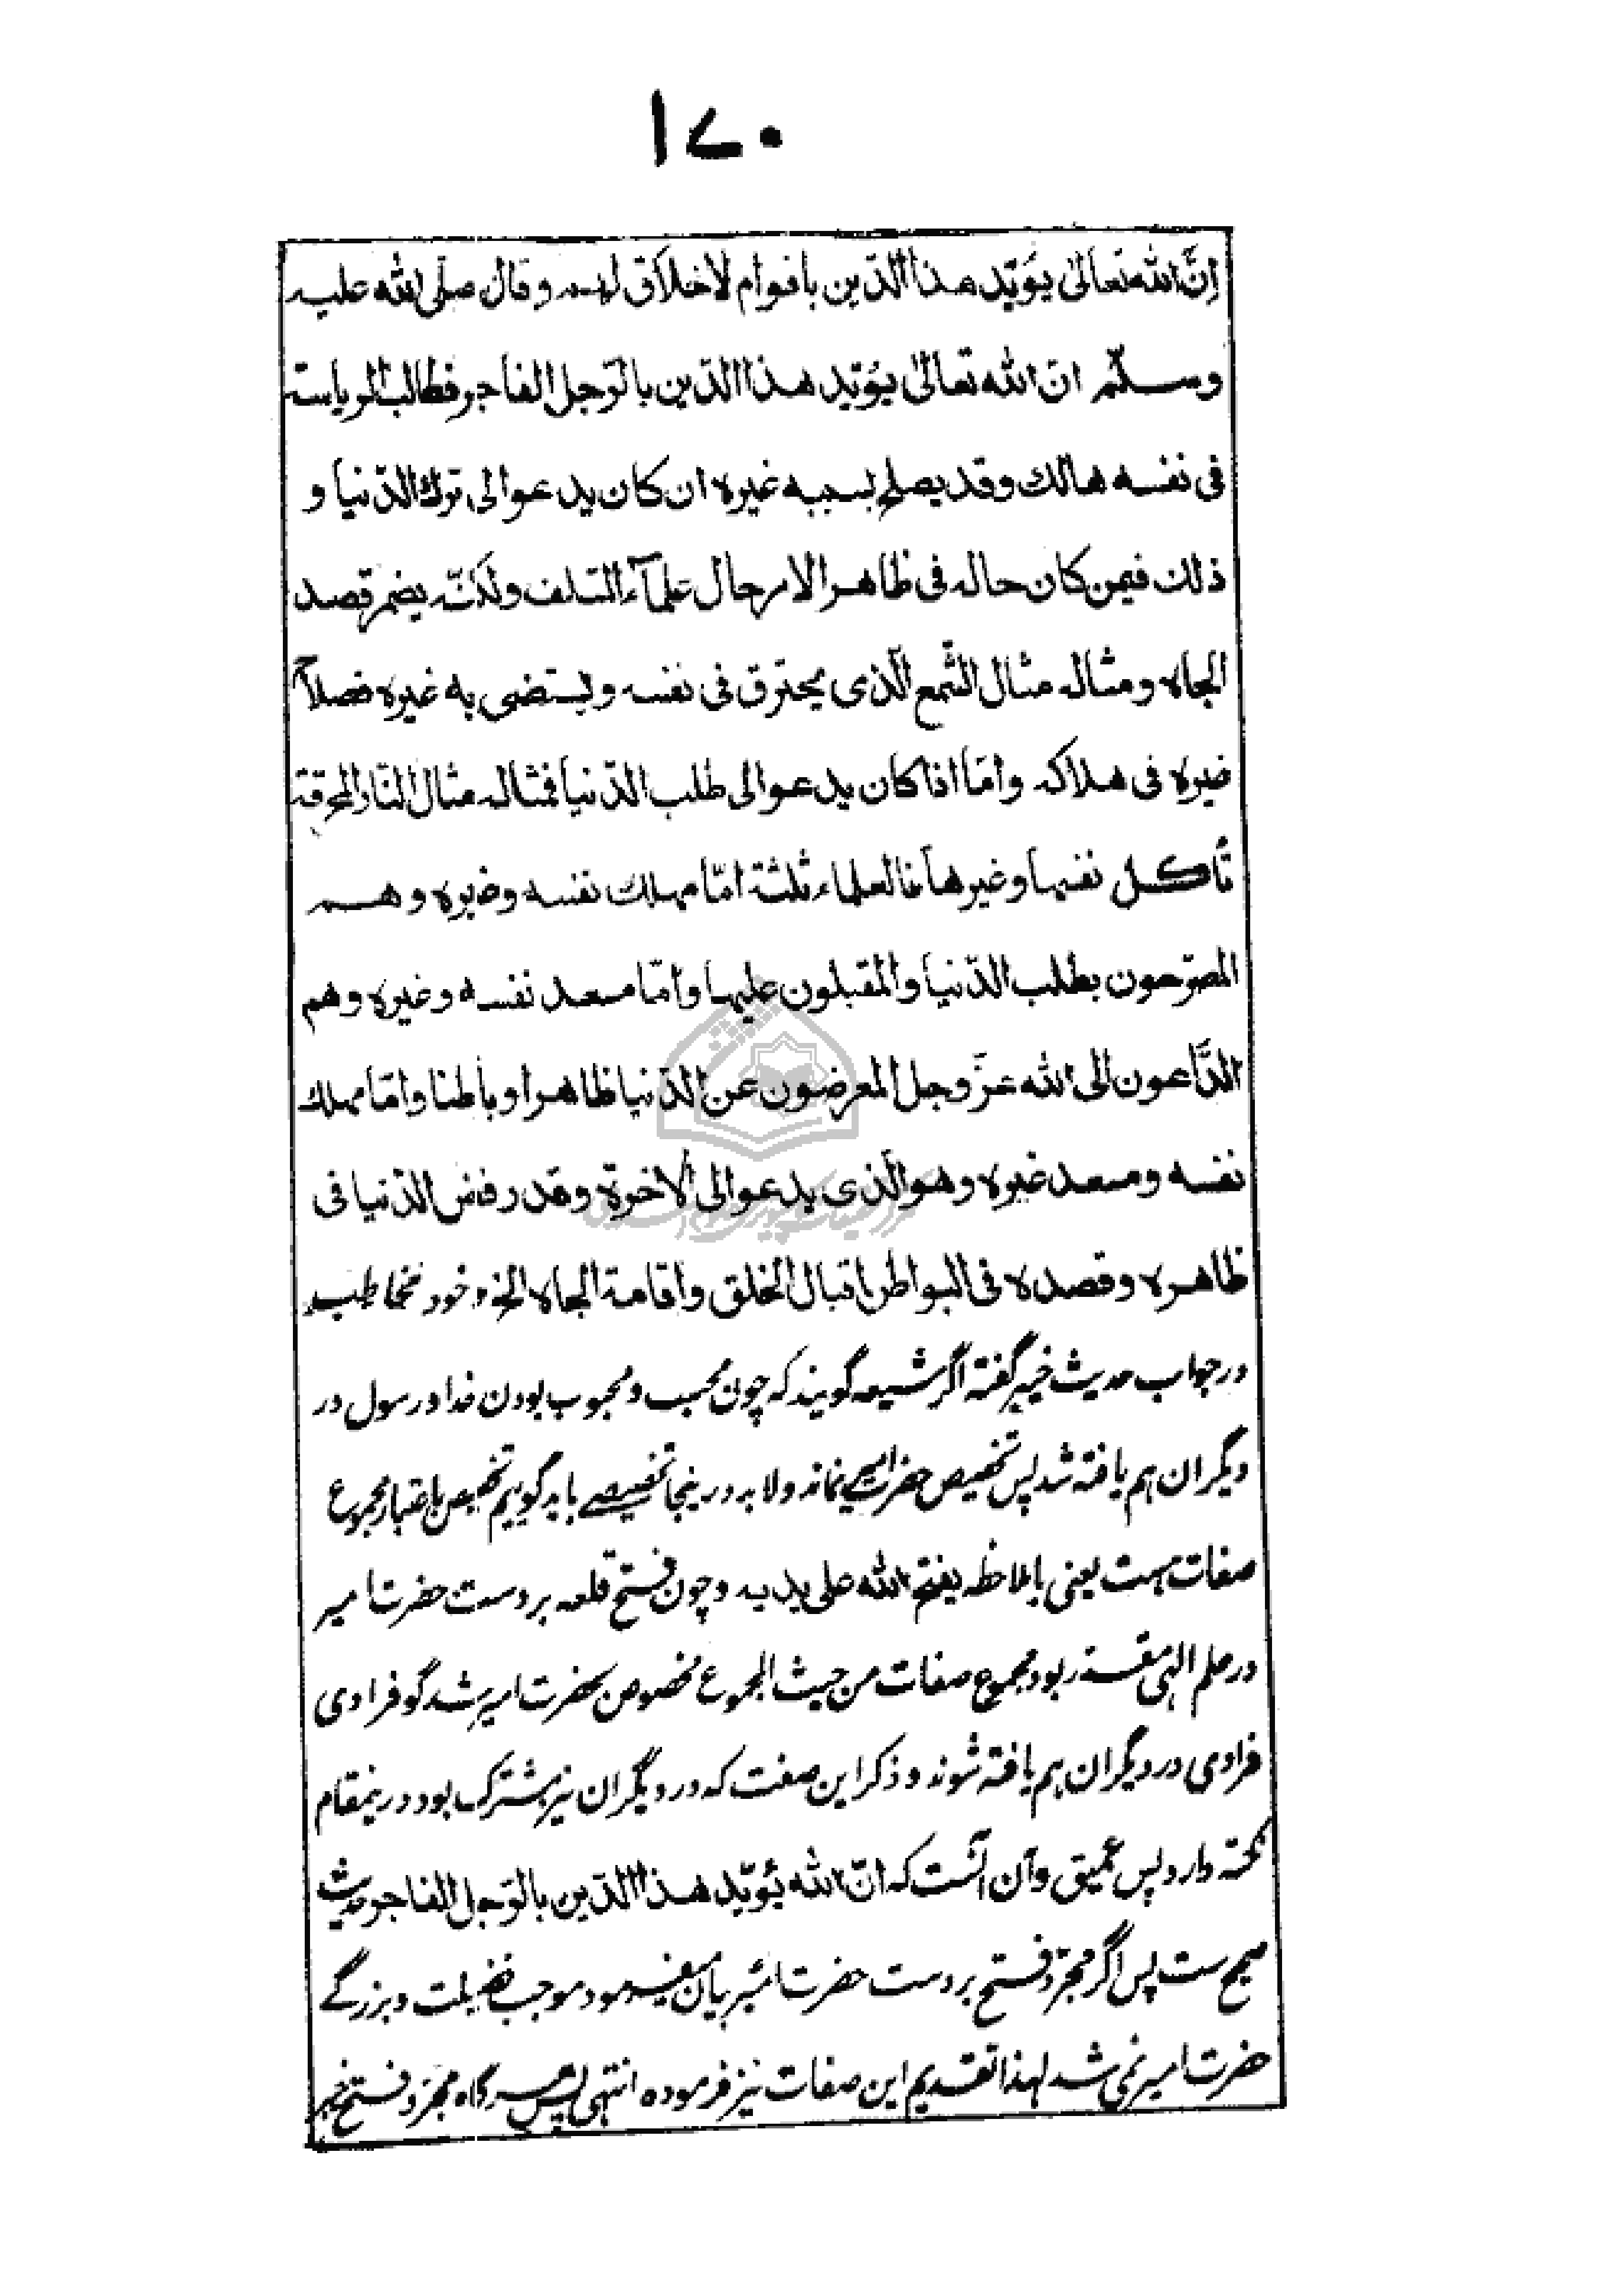 ۱۷۰
اِنَّ الله تعالیٰ یؤیّد هذا الدّین باقوام لا خلاق لهم و قال صلّی الله علیه
وسلّم انّ الله تعالیٰ یؤیّد هذا الدّین بالرّجل الفاجر فطالب الریاسة
فی نفسه هالك وقد یصلح بسببه غیره ان كان یدعو الی ترك الدّنیا و
ذلك فیمن كان حاله فی ظاهر الامر حال علمآء السّلف ولكنّه یضمر قصد
الجاه ومثاله مثال الشّمع الّذی یحترق فی نفسه ویستضی به غیره فصلاح
غیره فی هلاكه وامّا اذا كان یدعو الی طلب الدّنیا فمثاله مثال النّار المحرقة
تأكل نفسها وغیرها فالعلماء ثلثة امّا مهلك نفسه وغیره وهم
المصرّحون بطلب الدّنیا والمقبلون علیها وامّا مسعد نفسه وغیره وهم
الدَّاعون الی الله عزّ وجل المعرضون عن الدّنیا ظاهرا وباطنا وامّا مهلك
نفسه ومسعد غیره وهو الّذی یدعو الی الاخرة وقد رفض الدّنیا فی
ظاهره وقصده فی البواطن اقبال الخلق واقامة الجاه الخ و خود مخاطب
در جواب حدیث خیبر گفته اگر شیعه گویند که چون محب و محبوب بودن خدا و رسول در
دیگران هم یافته شد پس تخصیص حضرت امیر نماند و لا بد درینجا تخصیصے باید گوییم تخصیص باعتبار مجموع
صفات ست یعنی با ملاحظه یفتح الله علی یدیه و چون فتح قلعه بر دست حضرت امیر
در علم الهی مقدر بود مجموع صفات من حیث المجموع مخصوص بحضرت امیر شد گو فرادی
فرادی در دیگران هم یافته شوند و ذکر این صفت که در دیگران نیز مشترک بود درینمقام
نکته دارد پس عمیق و آن آنست که انّ الله یؤیّد هذا الدّین بالرّجل الفاجر حدیث
صحیح ست پس اگر مجرّد فتح بر دست حضرت امیر بیان میفرمود موجب فضیلت و بزرگے
حضرت امیر نمی شد لهذا تقدیم این صفات نیز فرموده انتهی پس هر گاه مجرّد فتح خیبر